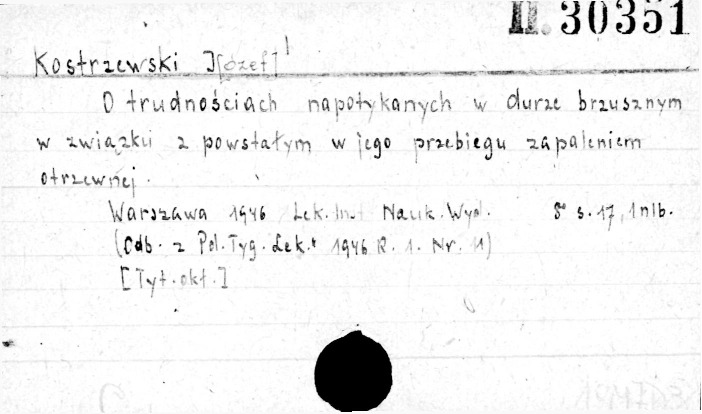 II. 30351
Kostrzewski J[ózef] 1
O trudnościach napotykanych w durze brzusznym
w związku z powstałym w jego przebiegu zapaleniem
otrzewnej.
Warszawa 1946 Lek. Inst Nauk. Wyd. 8° s. 17, 1 nlb.
(Odb. z Pol. Tyg. Lek. 1946 R. 1. Nr. 11)
[Tyt. okł.]